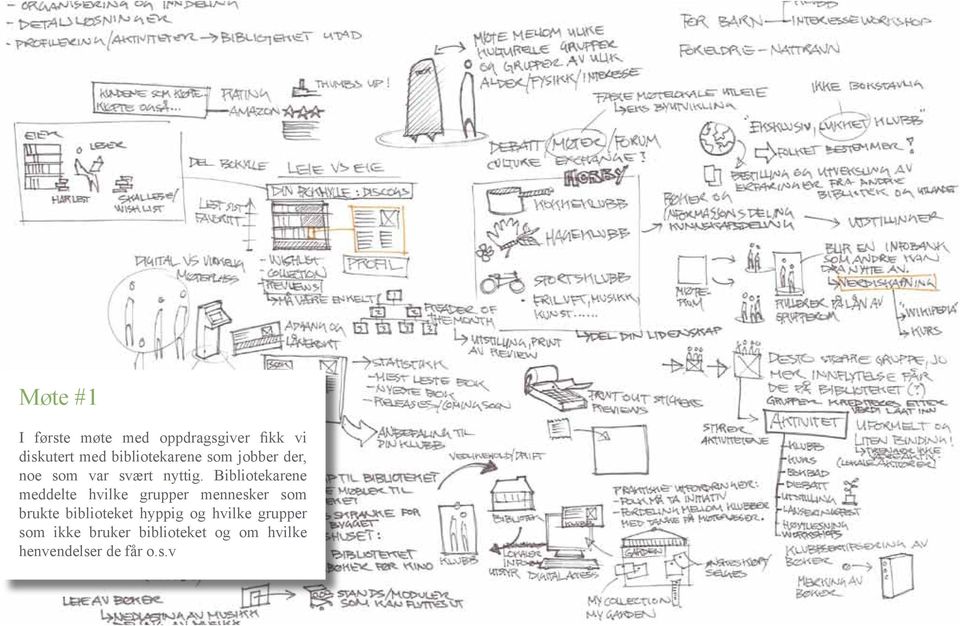 - ORGANISERING OG INNDELING
- DETALJLØSNINGER
- PROFILERING/AKTIVITETER → BIBLIOTEKET UTAD
KUNDENE SOM KJØPTE
KJØPTE OGSÅ...
RATING
AMAZON
THUMBS UP!
MØTE MELLOM ULIKE
KULTURELLE GRUPPER
OG GRUPPER AV ULIK
ALDER/FYSIKK/INTERESSE
FOR BARN
INTERESSEWORKSHOP
FORELDRE - NATTRAVN
FASTE MØTELOKALE UTLEIE
EKS BYUTVIKLING
IKKE BOKSTAVLIG
"EKSKLUSIV, LUKKET KLUBB"
→ FOLKET BESTEMMER!
DEBATT/MØTER/FORUM
CULTURE EXCHANGE?
BESTILLING OG UTVEKSLING AV
ERFARINGER FRA ANDRE
BIBLIOTEK OG UTLANDET
EIER
LESER
HAR LEST
SKAL LESE/
WISHLIST
DEL BOKHYLLE
LEIE VS EIE
DIN BOKHYLLE: DISCOGS
LEST SIST
FAVORITT
PROFIL
DIGITAL VS VIRKELIG
MØTEPLASS
- WISHLIST
- COLLECTION
- REVIEWS
MÅ VÆRE ENKELT!
HOBBY
KOKKEKLUBB
HAGEKLUBB
SPORTSKLUBB
- FRILUFT, MUSIKK,
KUNST......
BØKER OG
INFORMASJONSDELING
KUNNSKAPSDELING
UTSTILLINGER
BLIR EN INFOBANK
SOM ANDRE KAN
DRA NYTTE AV.
VERDISKAPNING
"WIKIPEDIA"
KURS
MØTE-
RUM
RULLERER PÅ LÅN AV
GRUPPEROM
ADGANG OG
LÅNEKORT
READER OF
THE MONTH
UTSTILLING, PRINT
AV REVIEW
DEL DIN LIDENSKAP
→ STATISTIKK
- MEST LESTE BOK
- NYESTE BOK
- RELEASES/COMING SOON
PRINT OUT STICKERS
REVIEWS
→ ANBEFALING TIL
DIN KLUBB
DESTO STØRRE GRUPPE, JO
MER INNFLYTELSE FÅR
DE PÅ BIBLIOTEKET (?)
GRUPPER KREDITERES ETTER
VERDI LAGT INN
STYRER
AKTIVITETENE
AKTIVITET
- KLUBB
- KURS
- BOKBAD
- DEBATT
- UTSTILLING
- LANSERINGSFEST
- HØYTLESNING
- WORKSHOPS
UFORMELT OG
LITEN BINDING!
Møte #1
I første møte med oppdragsgiver fikk vi
diskutert med bibliotekarene som jobber der,
noe som var svært nyttig. Bibliotekarene
meddelte hvilke grupper mennesker som
brukte biblioteket hyppig og hvilke grupper
som ikke bruker biblioteket og om hvilke
henvendelser de får o.s.v
VEDLIKEHOLD/DRIFT
TIL BIBLIOTEKET
MØBLER TIL
SKRANKE FOR
BYGGET
HUSET:
BIBLIOTEKET
BØKER FØR KINO
BIBLIOTEK
KLUBB
LOKALER
INFO
UTSTYR
DIGITAL ACCESS
PRAKTISKE UTFORDRINGER:
- FOLK MÅ TA INITIATIV
- FORDELING MELLOM KLUBBER
MED TANKE PÅ MØTEPLASSER.
GARDEN
MY COLLECTION/
MY GARDEN
KLUBBSERTIFISERING AV
BØKER
MERKING AV
BØKER
LEIE AV BØKER
NEDLASTING AV MUSIKK
STANDS/MODULER
SOM KAN FLYTTES UT